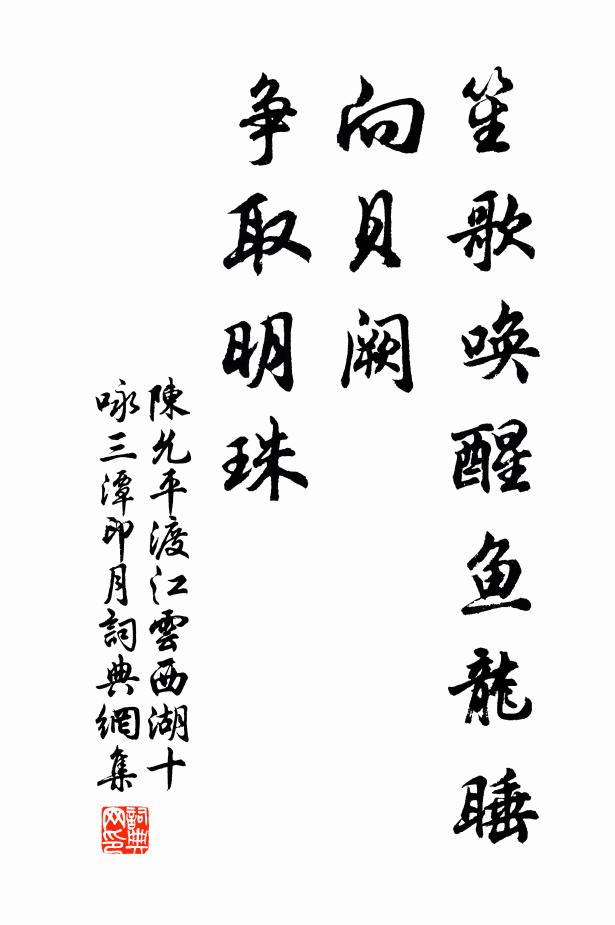 笙歌唤醒鱼龍睡
向貝闕
争取明珠
陳允平渡江雲西湖十
咏三潭印月詞典網集
詞典
网印